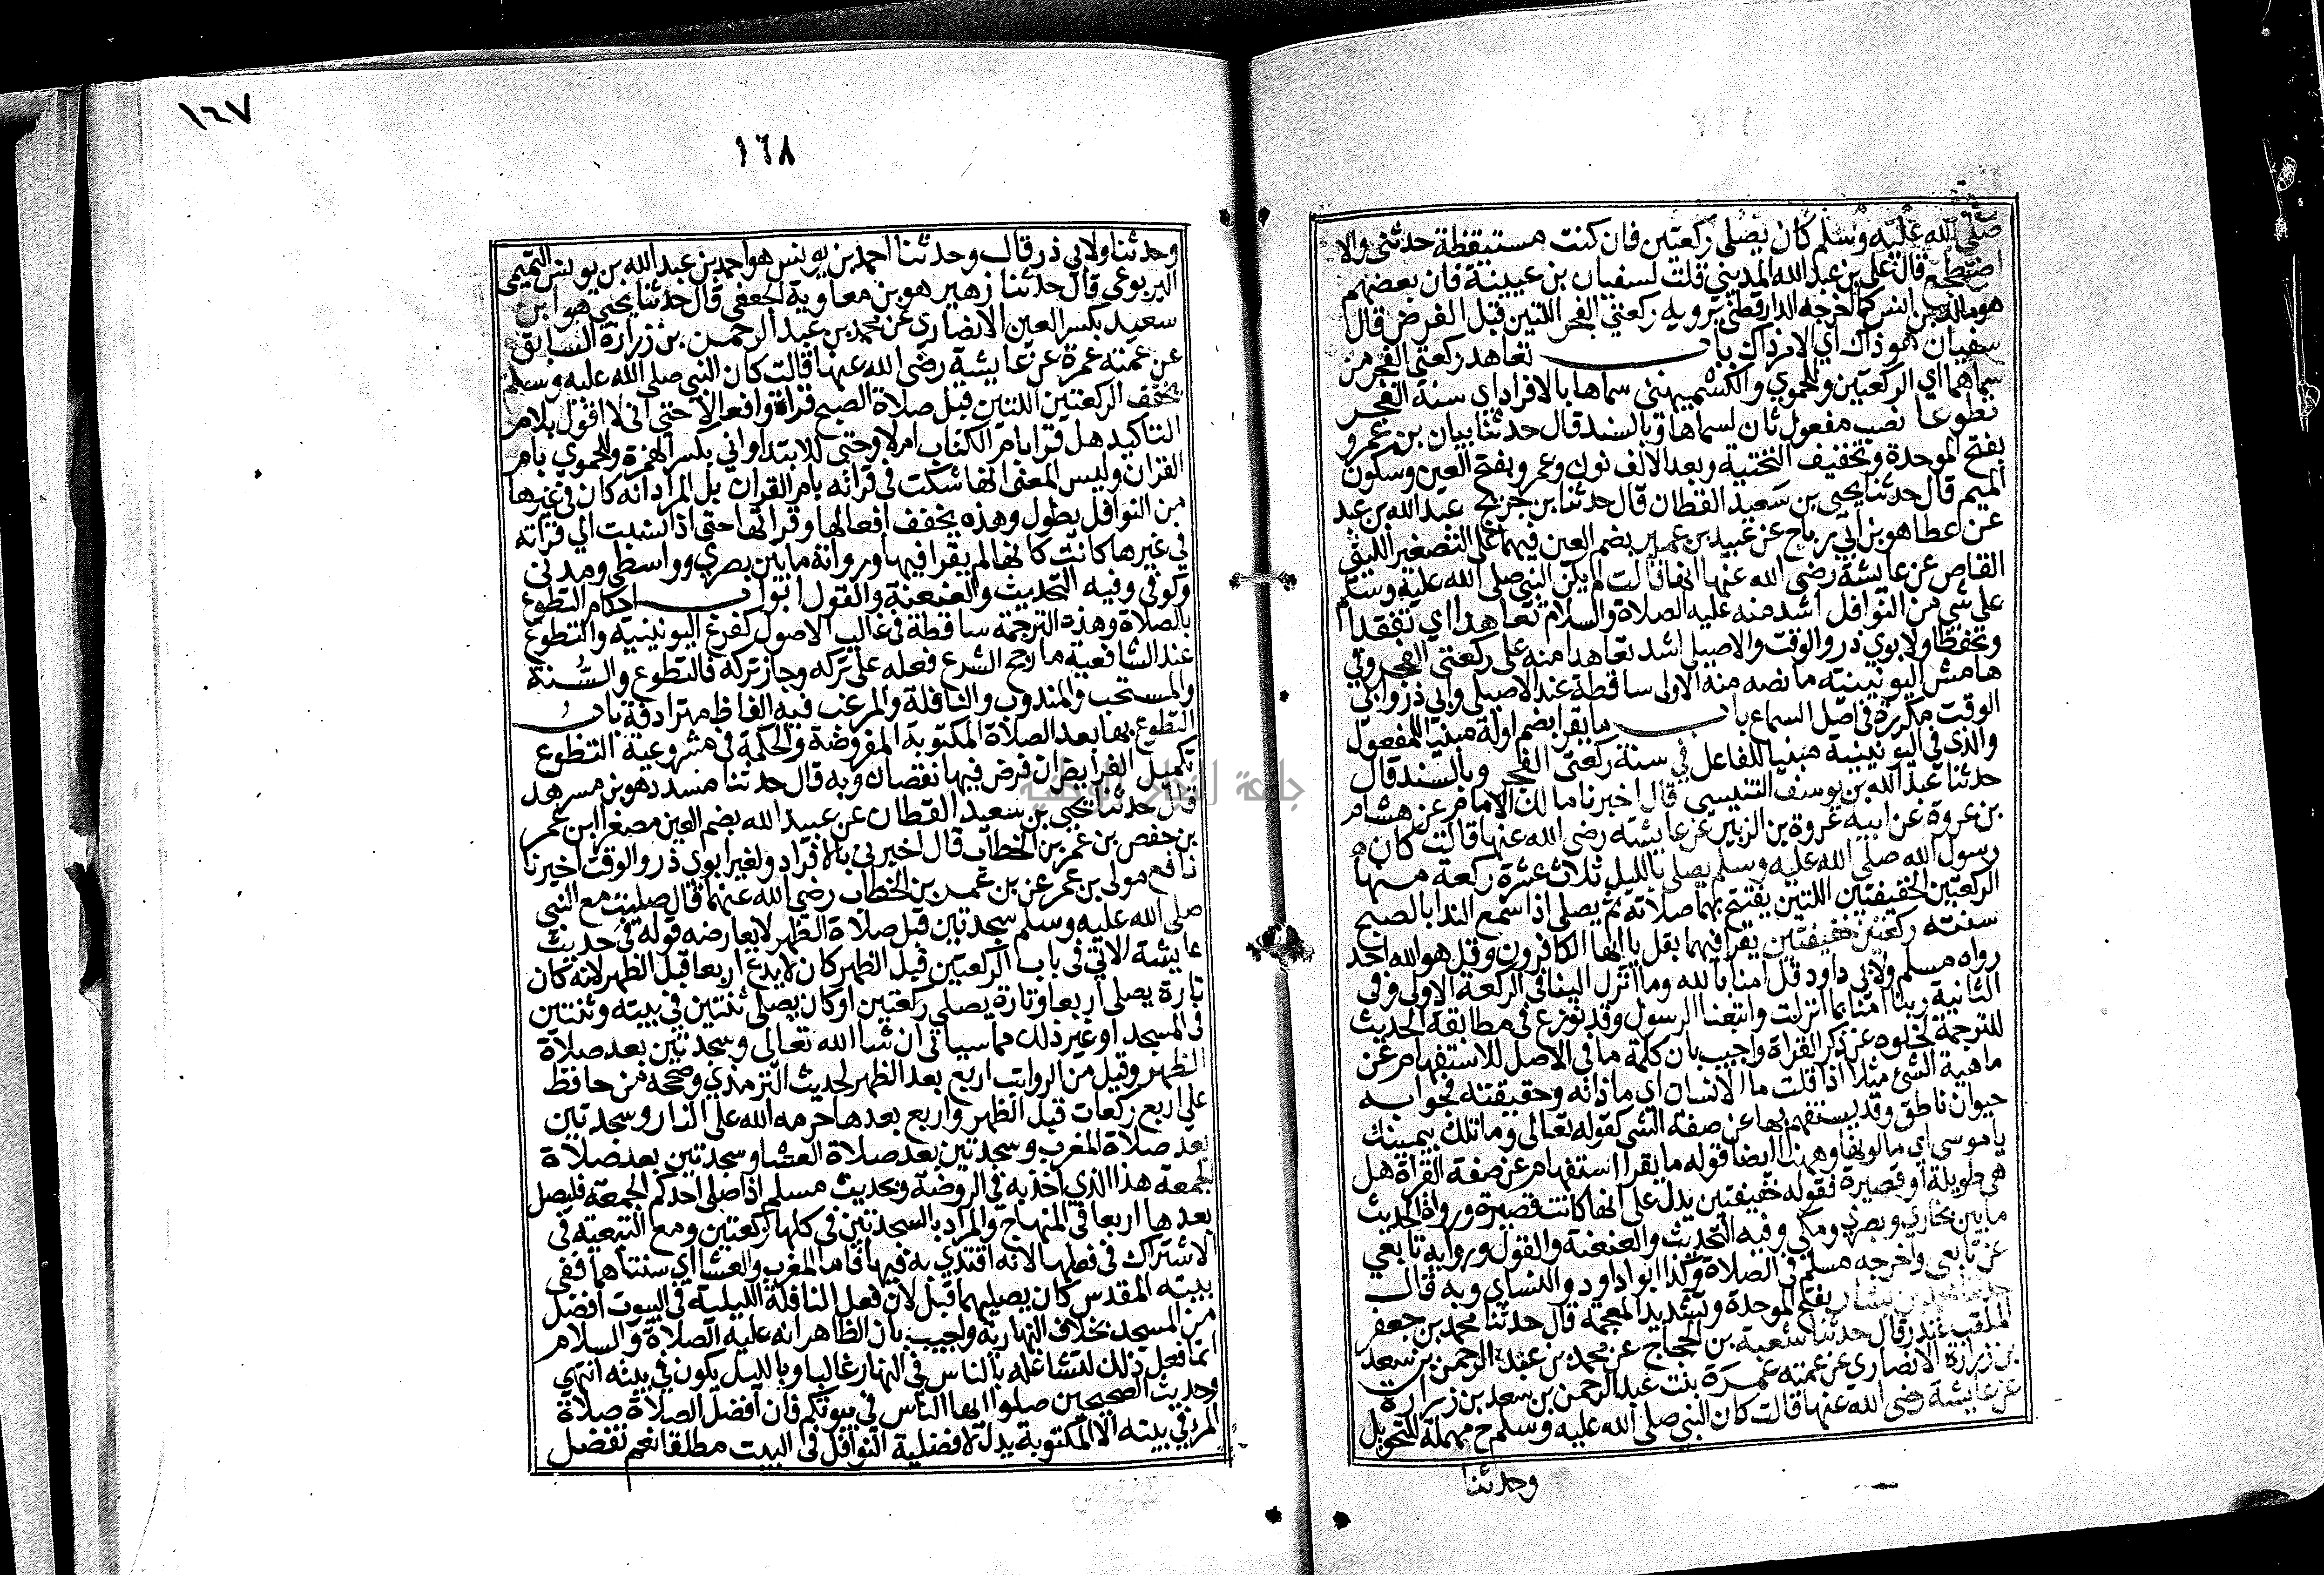 صلى الله عليه وسلم كان يصلي ركعتين فان كنت مستيقظة حدثني والا
اضطجع قال علي بن عبد الله المديني قلت لسفيان بن عيينة فان بعضهم
هو مالك بن انس كما اخرجه الدارقطني يرويه ركعتي الفجر اللتين قبل الفرض قال
سفيان هو ذاك اي الامر ذاك باب تعاهد ركعتي الفجر من
سماهما اي الركعتين وللحموي والكشميهني سماها بالافراد اي سنة الفجر
تطوعا نصب مفعول ثان لسماها وبالسند قال حدثنا بيان بن عمرو
بفتح الموحدة وتخفيف التحتية وبعد الالف نون وعمرو بفتح العين وسكون
الميم قال حدثنا يحيى بن سعيد القطان قال حدثنا بن جريج عبد الله بن عبد
عن عطا هو بن ابي رباح عن عبيد بن عمير بضم العين فيهما على التصغير الليثي
القاص عن عايشة رضي الله عنها انها قالت لم يكن النبي صلى الله عليه وسلم
على شي من النوافل اشد منه عليه الصلاة والسلام تعاهدا اي تفقدا
وتحفظا ولابوي ذر والوقت والاصيلي اشد تعاهدا منه على ركعتي الفجر وفي
هامش اليونينية ما نصه منه الاولى ساقطة عند الاصيلي وابي ذر وابي
الوقت مكررة في اصل السماع باب ما يقرا بضم اوله مبنيا للمفعول
والذي في اليونينية مبنيا للفاعل في سنة ركعتي الفجر وبالسند قال
حدثنا عبد الله بن يوسف التنيسي قال اخبرنا مالك الامام عن هشام
بن عروة عن ابيه عروة بن الزبير عن عايشة رضي الله عنها قالت كان
رسول الله صلى الله عليه وسلم يصلي بالليل ثلاث عشرة ركعة منها
الركعتين الخفيفتين اللتين يفتتح بهما صلاته ثم يصلي اذا سمع الندا بالصبح
سنته ركعتين خفيفتين يقرا فيهما بقل يا ايها الكافرون وقل هو الله احد
رواه مسلم ولابي داود قل امنا بالله وما انزل الينا في الركعة الاولى وفي
الثانية ربنا امنا بما انزلت واتبعنا الرسول وقد نوزع في مطابقة الحديث
للترجمة لخلوه عن ذكر القراة واجيب بان كلمة ما في الاصل للاستفهام عن
ماهية الشي مثلا اذا قلت ما الانسان اي ما ذاته وحقيقته فجوابه
حيوان ناطق وقد يستفهم بها عن صفة الشي كقوله تعالى وما تلك بيمينك
يا موسى اي ما لونها وههنا ايضا قوله ما يقرا استفهام عن صفة القراة هل
هي طويلة او قصيرة فقوله خفيفتين يدل على انها كانت قصيرة ورواة الحديث
ما بين بخاري وبصري ومكي وفيه التحديث والعنعنة والقول ورواية تابعي
عن تابعي واخرجه مسلم في الصلاة وكذا ابو داود والنساي وبه قال
حدثنا محمد بن بشار بفتح الموحدة وتشديد المعجمة قال حدثنا محمد بن جعفر
الملقب غندر قال حدثنا شعبة بن الحجاج عن محمد بن عبد الرحمن بن سعد
بن زرارة الانصاري عن عمته عمرة بنت عبد الرحمن بن سعد بن زرارة
عن عايشة رضي الله عنها قالت كان النبي صلى الله عليه وسلم ح مهملة للتحويل
وحدثنا
١٦٧
١٦٨
وحدثنا ولابي ذر قال وحدثنا احمد بن يونس هو احمد بن عبد الله بن يونس التميمي
اليربوعي قال حدثنا زهير هو بن معاوية الجعفي قال حدثنا يحيى هو ابن
سعيد بكسر العين الانصاري عن محمد بن عبد الرحمن بن زرارة السابق
عن عمته عمرة عن عايشة رضي الله عنها قالت كان النبي صلى الله عليه وسلم
يخفف الركعتين اللتين قبل صلاة الصبح قراة وافعالا حتى اني لا اقول بلام
التاكيد هل قرا بام الكتاب ام لا وحتى للابتدا واني بكسر الهمزة وللحموي بام
القران وليس المعنى انها شكت في قراته بام القران بل المراد انه كان في غيرها
من النوافل يطول وهذه يخفف افعالها وقراتها حتى اذا نسبت الى قراته
في غيرها كانت كانها لم يقرا فيها ورواته ما بين بصري وواسطي ومدني
وكوفي وفيه التحديث والعنعنة والقول ابواب احكام التطوع
بالصلاة وهذه الترجمة ساقطة في غالب الاصول كفرع اليونينية والتطوع
عند الشافعية ما رجح الشرع فعله على تركه وجاز تركه فالتطوع والسنة
والمستحب والمندوب والنافلة والمرغب فيه الفاظ مترادفة باب
التطوع بها بعد الصلاة المكتوبة المفروضة والحكمة في مشروعية التطوع
تكميل الفرايض ان فرض فيها نقصان وبه قال حدثنا مسدد هو بن مسرهد
قال حدثنا يحيى بن سعيد القطان عن عبيد الله بضم العين مصغرا ابن عمر
بن حفص بن عمر بن الخطاب قال اخبرني بالافراد ولغير ابوي ذر والوقت اخبرنا
نافع مولى بن عمر عن بن عمر بن الخطاب رضي الله عنهما قال صليت مع النبي
صلى الله عليه وسلم سجدتين قبل صلاة الظهر لا يعارضه قوله في حديث
عايشة الاتي في باب الركعتين قبل الظهر كان لا يدع اربعا قبل الظهر لانه كان
تارة يصلي اربعا وتارة يصلي ركعتين او كان يصلي ثنتين في بيته وثنتين
في المسجد او غير ذلك مما سياتي ان شا الله تعالى وسجدتين بعد صلاة
الظهر وقيل من الرواتب اربع بعد الظهر لحديث الترمذي وصححه من حافظ
على اربع ركعات قبل الظهر واربع بعدها حرمه الله على النار وسجدتين
بعد صلاة المغرب وسجدتين بعد صلاة العشا وسجدتين بعد صلاة
الجمعة هذا الذي اخذ به في الروضة وبحديث مسلم اذا صلى احدكم الجمعة فليصل
بعدها اربعا في المنهاج والمراد بالسجدتين في كلها ركعتين ومع التبعية في
الاشتراك في فعلها لانه اقتدي به فيها فاما المغرب والعشا اي سنتاهما ففي
بيته المقدس كان يصليهما قبل لان فعل النافلة الليلية في البيوت افضل
من المسجد بخلاف النهارية واجيب بان الظاهر انه عليه الصلاة والسلام
انما فعل ذلك لتشاغله بالناس في النهار غالبا وبالليل يكون في بيته انتهى
وحديث الصحيحين صلوا ايها الناس في بيوتكم فان افضل الصلاة صلاة
المرء في بيته الا المكتوبة يدل لافضلية النوافل في البيت مطلقا نعم تفضل